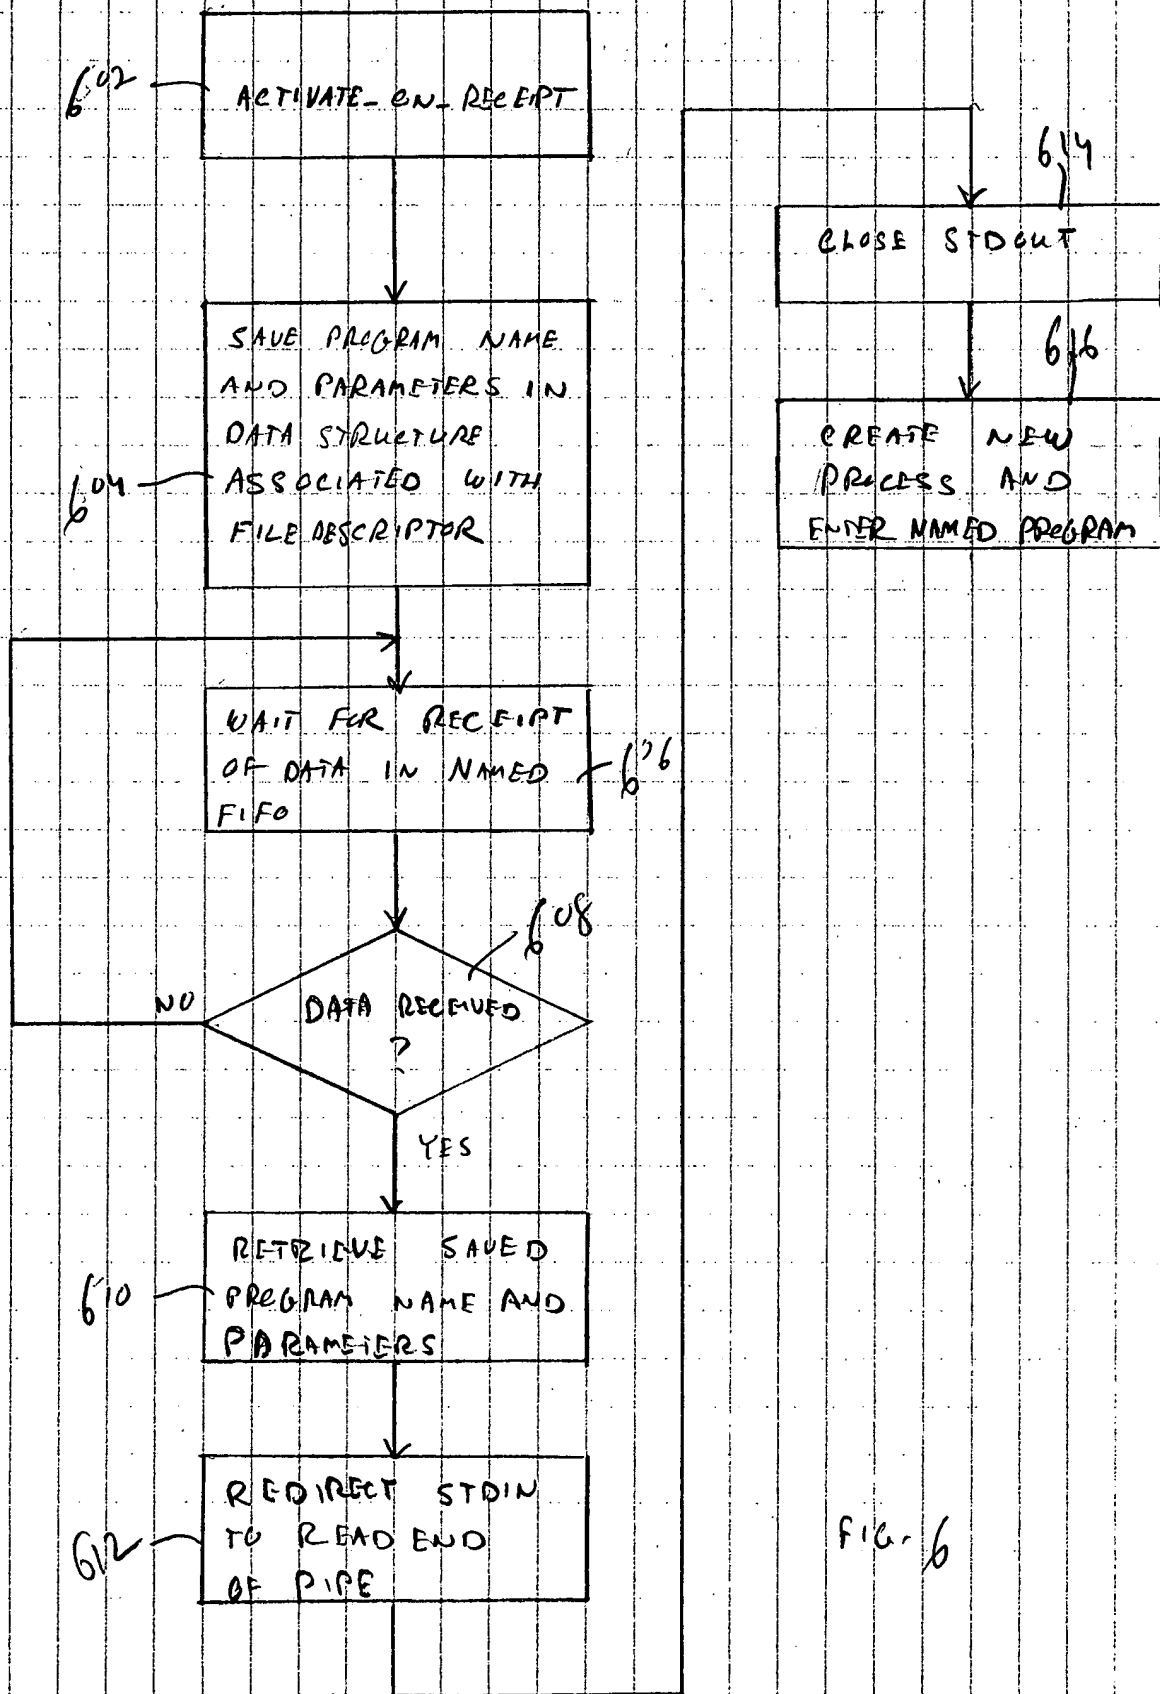 602
ACTIVATE_ON_RECEIPT
SAVE PROGRAM NAME
AND PARAMETERS IN
DATA STRUCTURE
604
ASSOCIATED WITH
FILE DESCRIPTOR
WAIT FOR RECEIPT
OF DATA IN NAMED
606
FIFO
608
DATA RECEIVED
?
NO
YES
RETRIEVE SAVED
610
PROGRAM NAME AND
PARAMETERS
REDIRECT STDIN
612
TO READ END
OF PIPE
614
CLOSE STDOUT
616
CREATE NEW
PROCESS AND
ENTER NAMED PROGRAM
FIG. 6